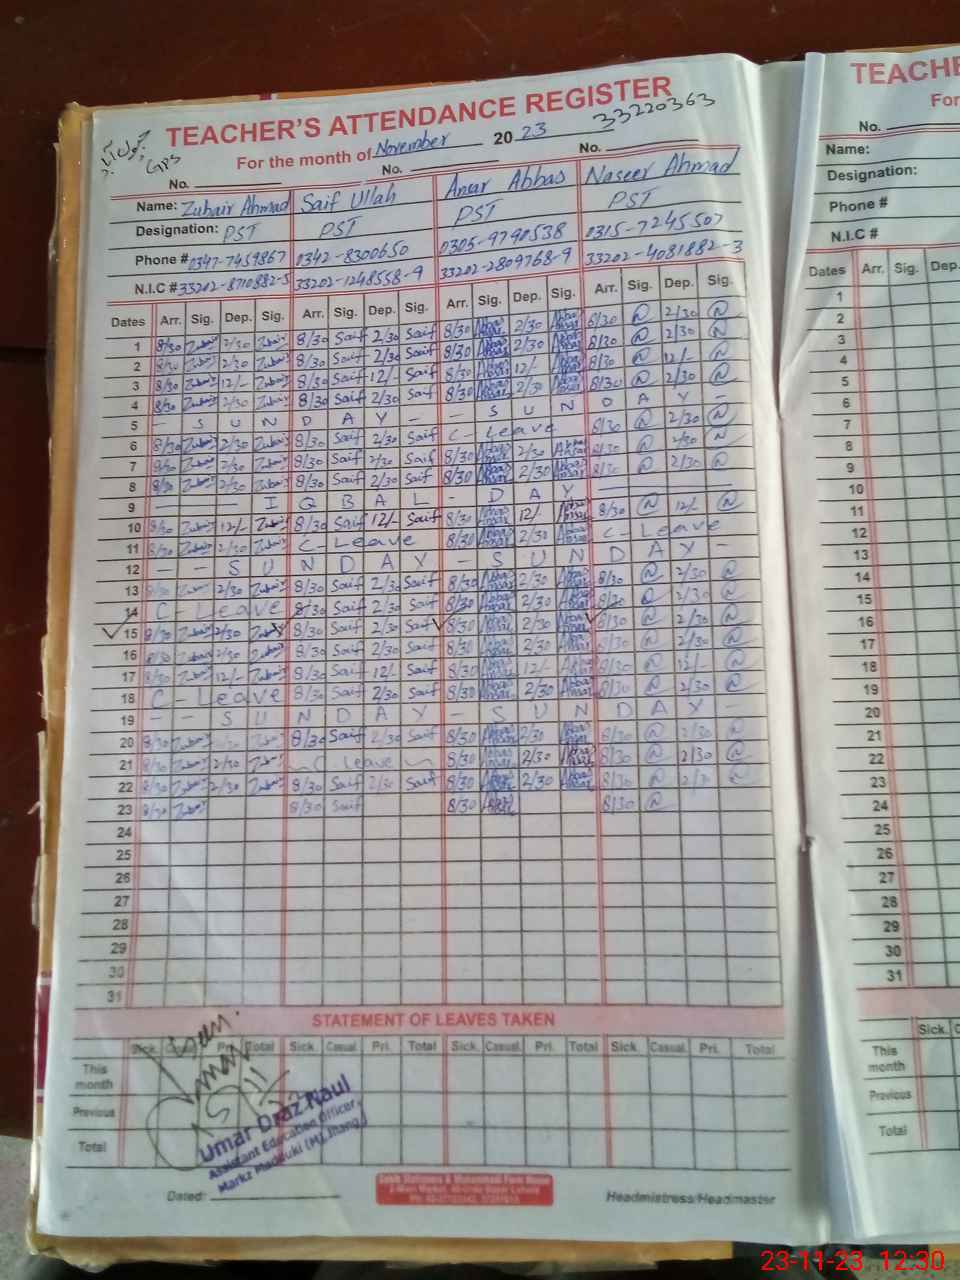 TEACHER'S ATTENDANCE REGISTER
33220363
For the month of November 20 23
GPS
No. No. No.
Name: Zubair Ahmad Saif Ullah Ansar Abbas Naseer Ahmad
Designation: PST PST PST PST
Phone # 0347-7459867 0342-8300650 0305-9790538 0315-7245507
N.I.C # 33202-8710882-5 33202-1248558-9 33202-2809768-9 33202-4081882-3
Dates Arr. Sig. Dep. Sig. Arr. Sig. Dep. Sig. Arr. Sig. Dep. Sig. Arr. Sig. Dep. Sig.
1 8/30 Zubair 2/30 Zubair 8/30 Saif 2/30 Saif 8/30 Abbas Ansar 2/30 Abbas Ansar 8/30 @ 2/30 @
2 8/30 Zubair 2/30 Zubair 8/30 Saif 2/30 Saif 8/30 Abbas Ansar 2/30 Abbas Ansar 8/30 @ 2/30 @
3 8/30 Zubair 12/- Zubair 8/30 Saif 12/- Saif 8/30 Abbas Ansar 12/- Abbas Ansar 8/30 @ 12/- @
4 8/30 Zubair 2/30 Zubair 8/30 Saif 2/30 Saif 8/30 Abbas Ansar 2/30 Abbas Ansar 8/30 @ 2/30 @
5 - S U N D A Y - - S U N D A Y -
6 8/30 Zubair 2/30 Zubair 8/30 Saif 2/30 Saif C - Leave 8/30 @ 2/30 @
7 8/30 Zubair 2/30 Zubair 8/30 Saif 2/30 Saif 8/30 Abbas Ansar 2/30 Abbas Ansar 8/30 @ 2/30 @
8 8/30 Zubair 2/30 Zubair 8/30 Saif 2/30 Saif 8/30 Abbas Ansar 2/30 Abbas Ansar 8/30 @ 2/30 @
9 - - - I Q B A L - D A Y - - - -
10 8/30 Zubair 12/- Zubair 8/30 Saif 12/- Saif 8/30 Abbas Ansar 12/- Abbas Ansar 8/30 @ 12/- @
11 8/30 Zubair 2/30 Zubair C - Leave 8/30 Abbas Ansar 2/30 Abbas Ansar C - Leave
12 - - S U N D A Y - S U N D A Y -
13 8/30 Zubair 2/30 Zubair 8/30 Saif 2/30 Saif 8/30 Abbas Ansar 2/30 Abbas Ansar 8/30 @ 2/30 @
14 C - Leave 8/30 Saif 2/30 Saif 8/30 Abbas Ansar 2/30 Abbas Ansar 8/30 @ 2/30 @
15 8/30 Zubair 2/30 Zubair 8/30 Saif 2/30 Saif 8/30 Abbas Ansar 2/30 Abbas Ansar 8/30 @ 2/30 @
16 8/30 Zubair 2/30 Zubair 8/30 Saif 2/30 Saif 8/30 Abbas Ansar 2/30 Abbas Ansar 8/30 @ 2/30 @
17 8/30 Zubair 12/- Zubair 8/30 Saif 12/- Saif 8/30 Abbas Ansar 12/- Abbas Ansar 8/30 @ 12/- @
18 C - Leave 8/30 Saif 2/30 Saif 8/30 Abbas Ansar 2/30 Abbas Ansar 8/30 @ 2/30 @
19 - - S U N D A Y - S U N D A Y -
20 8/30 Zubair 2/30 Zubair 8/30 Saif 2/30 Saif 8/30 Abbas Ansar 2/30 Abbas Ansar 8/30 @ 2/30 @
21 8/30 Zubair 2/30 Zubair C - Leave 8/30 Abbas Ansar 2/30 Abbas Ansar 8/30 @ 2/30 @
22 8/30 Zubair 2/30 Zubair 8/30 Saif 2/30 Saif 8/30 Abbas Ansar 2/30 Abbas Ansar 8/30 @ 2/30 @
23 8/30 Zubair 8/30 Saif 8/30 Abbas Ansar 8/30 @
24
25
26
27
28
29
30
31
STATEMENT OF LEAVES TAKEN
Sick. Casual. Pri. Total Sick. Casual. Pri. Total Sick. Casual. Pri. Total Sick. Casual. Pri. Total
This month
Previous
Total
Seen.
Umar Draz Naul
Assistant Education Officer,
Markz Machuki (M) Jhang.
Dated: Headmistress/Headmaster
TEACHE
For
No.
Name:
Designation:
Phone #
N.I.C #
Dates Arr. Sig. Dep.
1
2
3
4
5
6
7
8
9
10
11
12
13
14
15
16
17
18
19
20
21
22
23
24
25
26
27
28
29
30
31
Sick. C
This month
Previous
Total
23-11-23 12:30